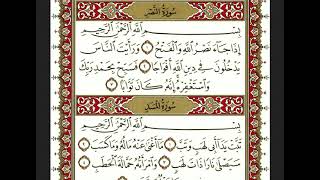 سُورَةُ النَّصْرِ
بِسْمِ اللَّهِ الرَّحْمَٰنِ الرَّحِيمِ
إِذَا جَاءَ نَصْرُ اللَّهِ وَالْفَتْحُ ١ وَرَأَيْتَ النَّاسَ
يَدْخُلُونَ فِي دِينِ اللَّهِ أَفْوَاجًا ٢ فَسَبِّحْ بِحَمْدِ رَبِّكَ
وَاسْتَغْفِرْهُ إِنَّهُ كَانَ تَوَّابًا ٣
سُورَةُ المَسَدِ
بِسْمِ اللَّهِ الرَّحْمَٰنِ الرَّحِيمِ
تَبَّتْ يَدَا أَبِي لَهَبٍ وَتَبَّ ١ مَا أَغْنَىٰ عَنْهُ مَالُهُ وَمَا كَسَبَ
٢ سَيَصْلَىٰ نَارًا ذَاتَ لَهَبٍ ٣ وَامْرَأَتُهُ حَمَّالَةَ الْحَطَبِ